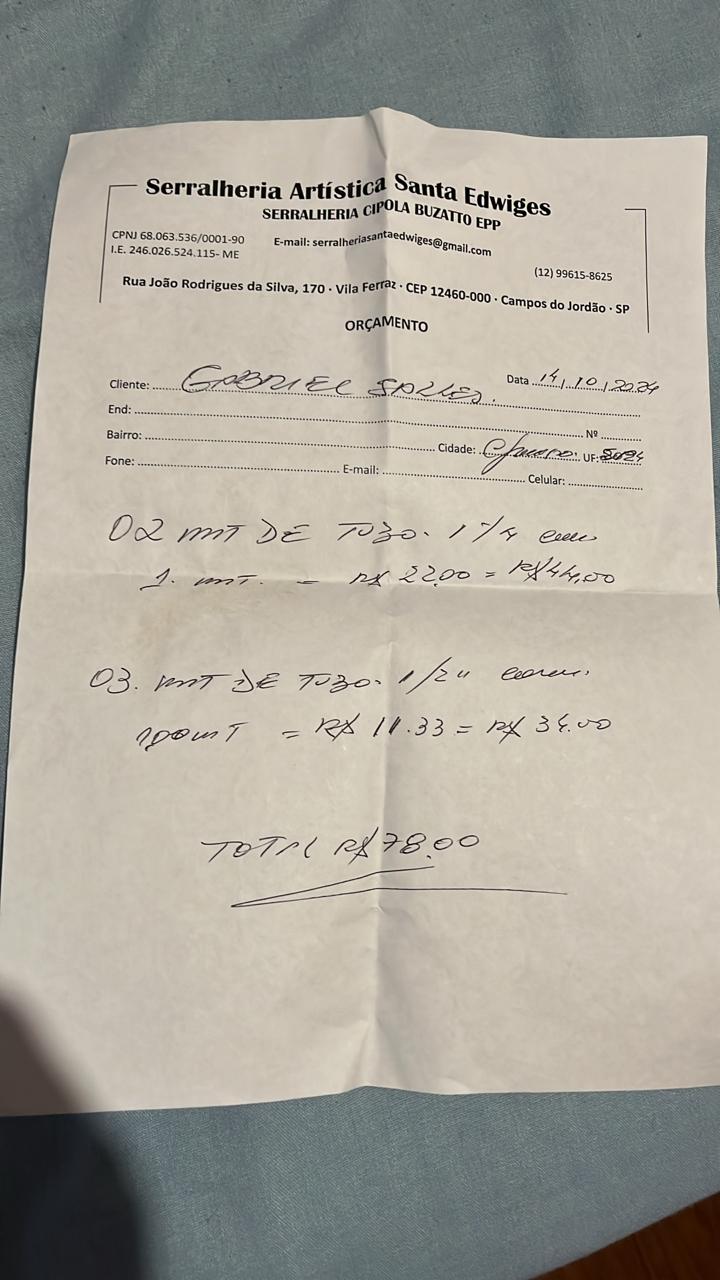 Serralheria Artística Santa Edwiges
SERRALHERIA CIPOLA BUZATTO EPP
CPNJ 68.063.536/0001-90
E-mail: serralheriasantaedwiges@gmail.com
I.E. 246.026.524.115- ME
(12) 99615-8625
Rua João Rodrigues da Silva, 170 · Vila Ferraz · CEP 12460-000 · Campos do Jordão · SP
ORÇAMENTO
Cliente: GABRIEL Data 14/10/2024
End: Nº
Bairro: Cidade: UF:
Fone: E-mail: Celular:
02 MT DE TUBO. 1 1/4
1. MT. = R$ 22.00 = R$ 44,00
03. MT DE TUBO. 1/2"
= R$ 11.33 = R$ 34.00
TOTAL R$ 78.00